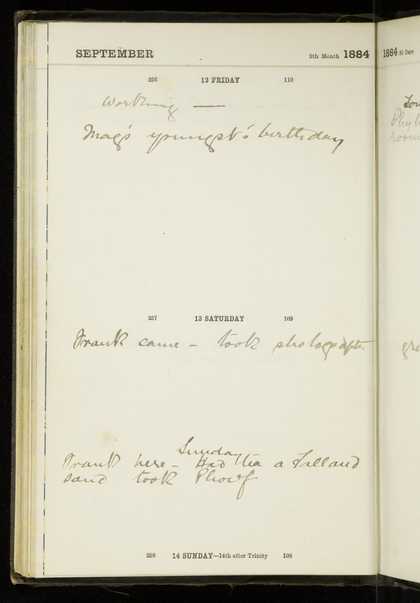 SEPTEMBER 9th Month 1884
256 12 FRIDAY 110
Working —
Mag's youngst's birthday
257 13 SATURDAY 109
Frank came - took
Sunday
Frank here - Had tea a
sand took
258 14 SUNDAY—14th after Trinity 108
1884